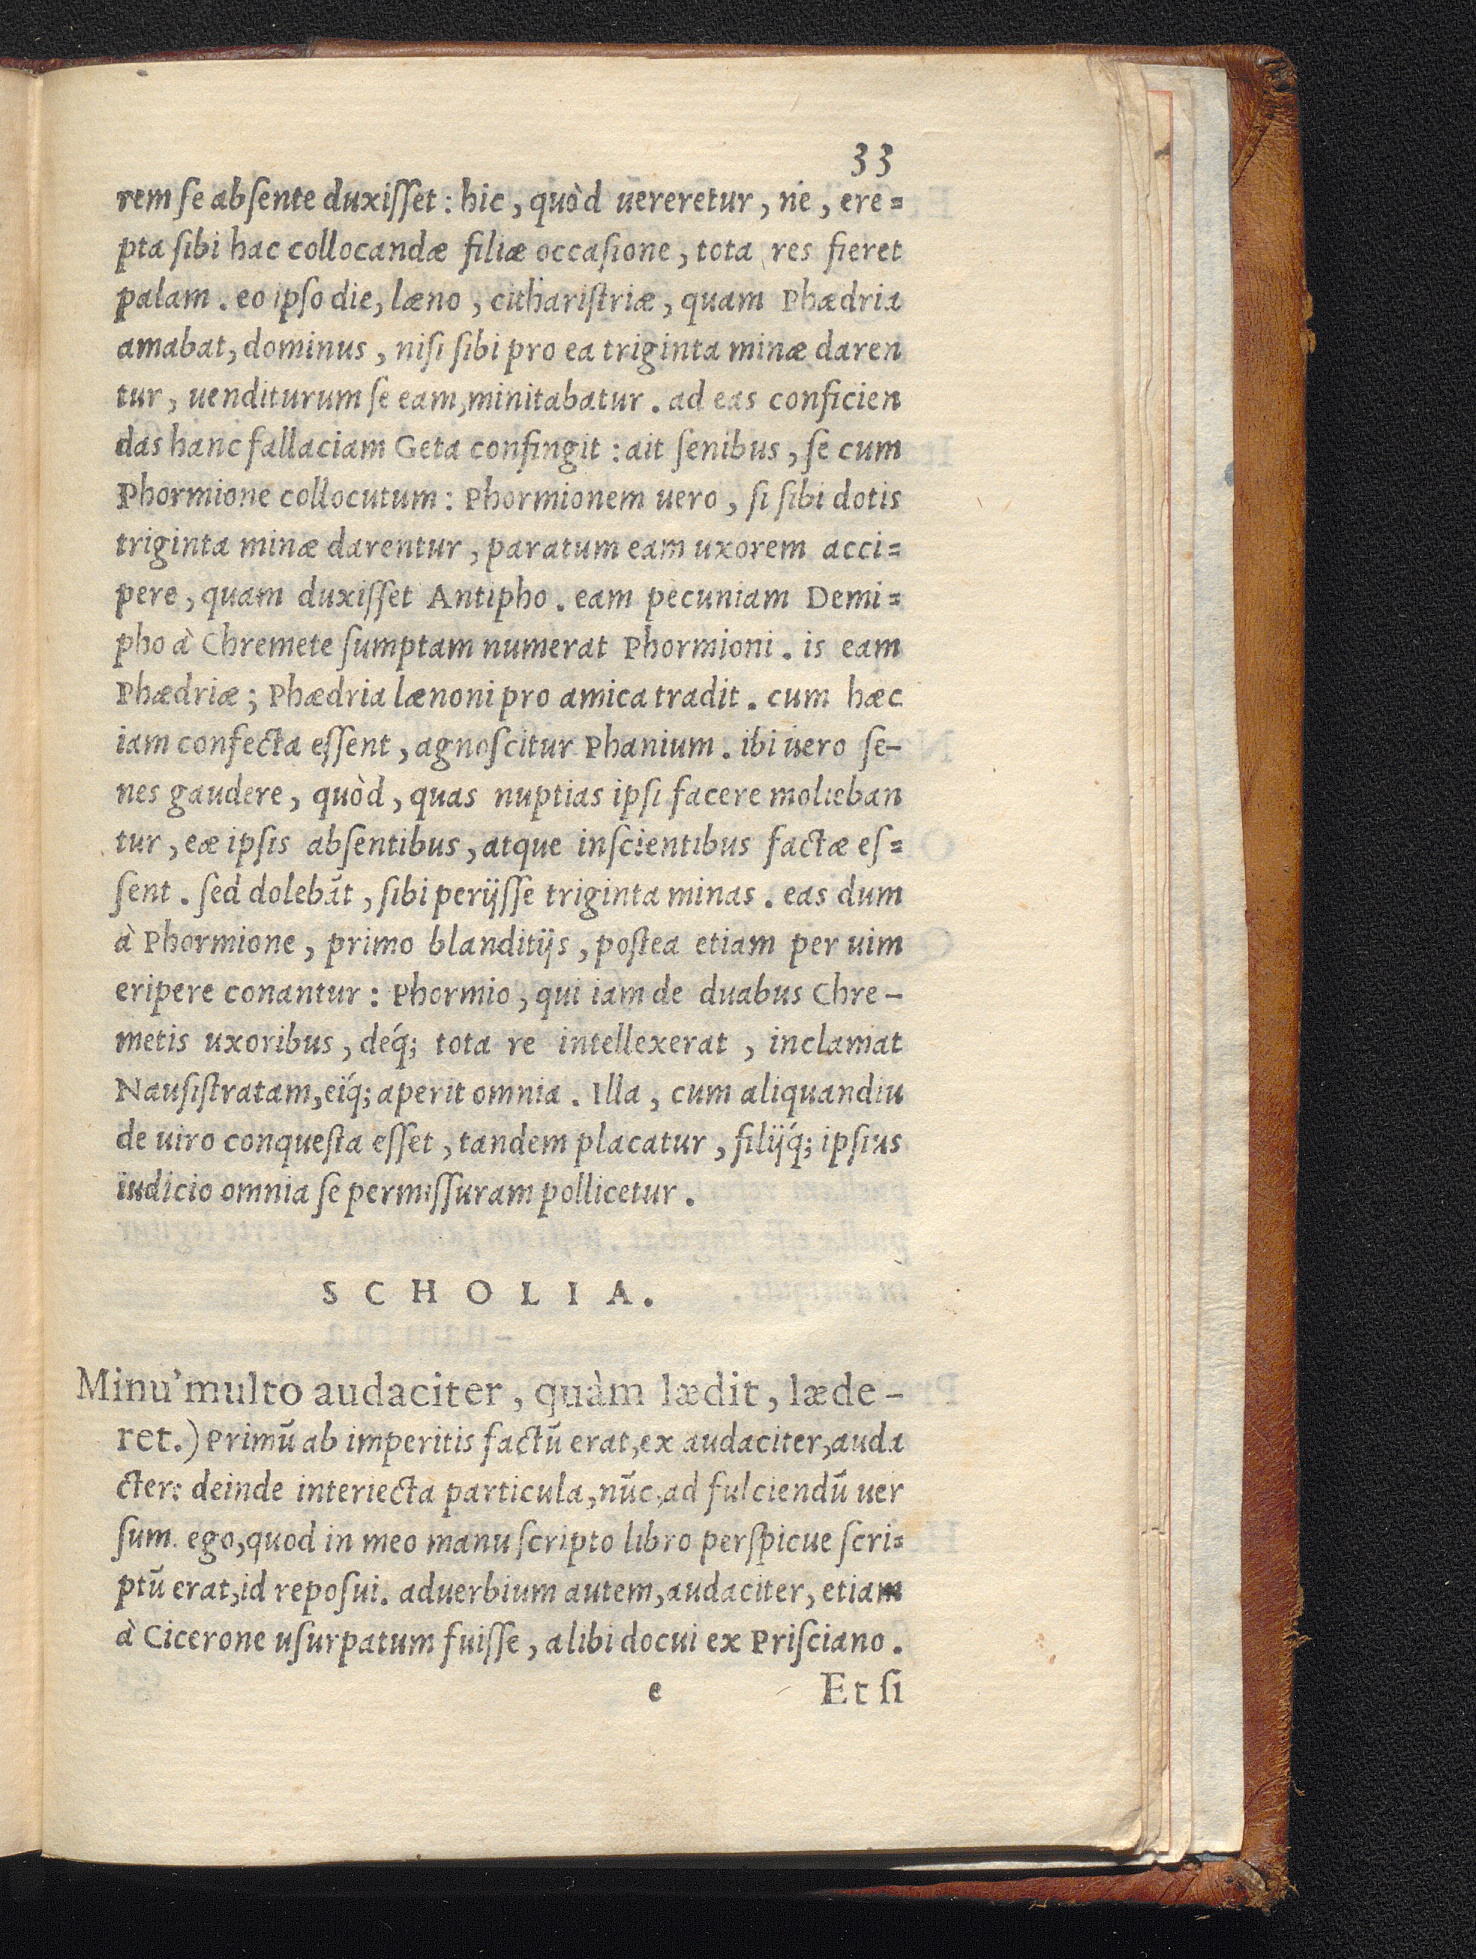 33
rem se absente duxisset: hic, quòd uereretur, ne, ere=
pta sibi hac collocandæ filiæ occasione, tota res fieret
palam. eo ipso die, læno, citharistriæ, quam Phædria
amabat, dominus, nisi sibi pro ea triginta minæ daren
tur, uenditurum se eam, minitabatur. ad eas conficien
das hanc fallaciam Geta confingit: ait senibus, se cum
Phormione collocutum: Phormionem uero, si sibi dotis
triginta minæ darentur, paratum eam uxorem acci=
pere, quam duxisset Antipho. eam pecuniam Demi=
pho à Chremete sumptam numerat Phormioni. is eam
Phædriæ; Phædria lænoni pro amica tradit. cum hæc
iam confecta essent, agnoscitur Phanium. ibi uero se-
nes gaudere, quòd, quas nuptias ipsi facere molieban
tur, eæ ipsis absentibus, atque inscientibus factæ es=
sent. sed dolebāt, sibi perijsse triginta minas. eas dum
à Phormione, primo blanditijs, postea etiam per uim
eripere conantur: Phormio, qui iam de duabus Chre-
metis uxoribus, deq́; tota re intellexerat, inclamat
Nausistratam, eiq́; aperit omnia. Illa, cum aliquandiu
de uiro conquesta esset, tandem placatur, filijq́; ipsius
iudicio omnia se permissuram pollicetur.
SCHOLIA.
Minu' multo audaciter, quàm lædit, læde-
ret.) Primū ab imperitis factū erat, ex audaciter, auda
cter: deinde interiecta particula, nūc, ad fulciendū uer
sum. ego, quod in meo manu scripto libro perspicue scri=
ptū erat, id reposui. aduerbium autem, audaciter, etiam
à Cicerone usurpatum fuisse, alibi docui ex Prisciano.
e Et si